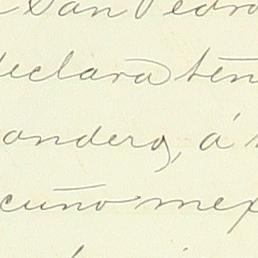 San Pedro
declara ten
ondero, á
cuño mex